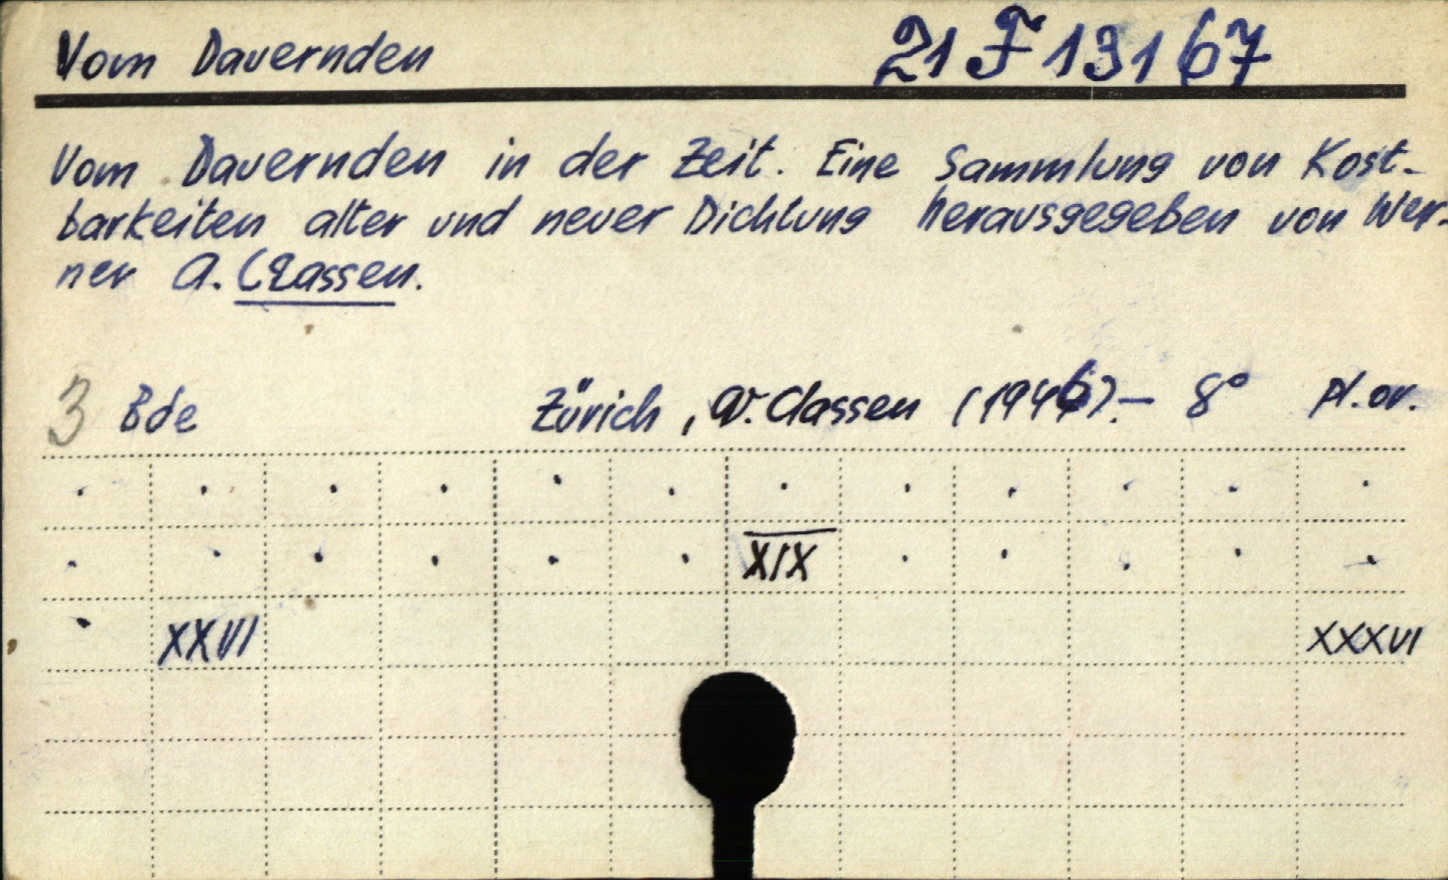 Vom Dauernden 21 F 13167
Vom Dauernden in der Zeit. Eine Sammlung von Kost-
barkeiten alter und neuer Dichtung herausgegeben von Wer-
ner A. Classen.
3 Bde Zürich, W. Classen (1946).- 8° Pl. or.
XIX
XXVI XXXVI